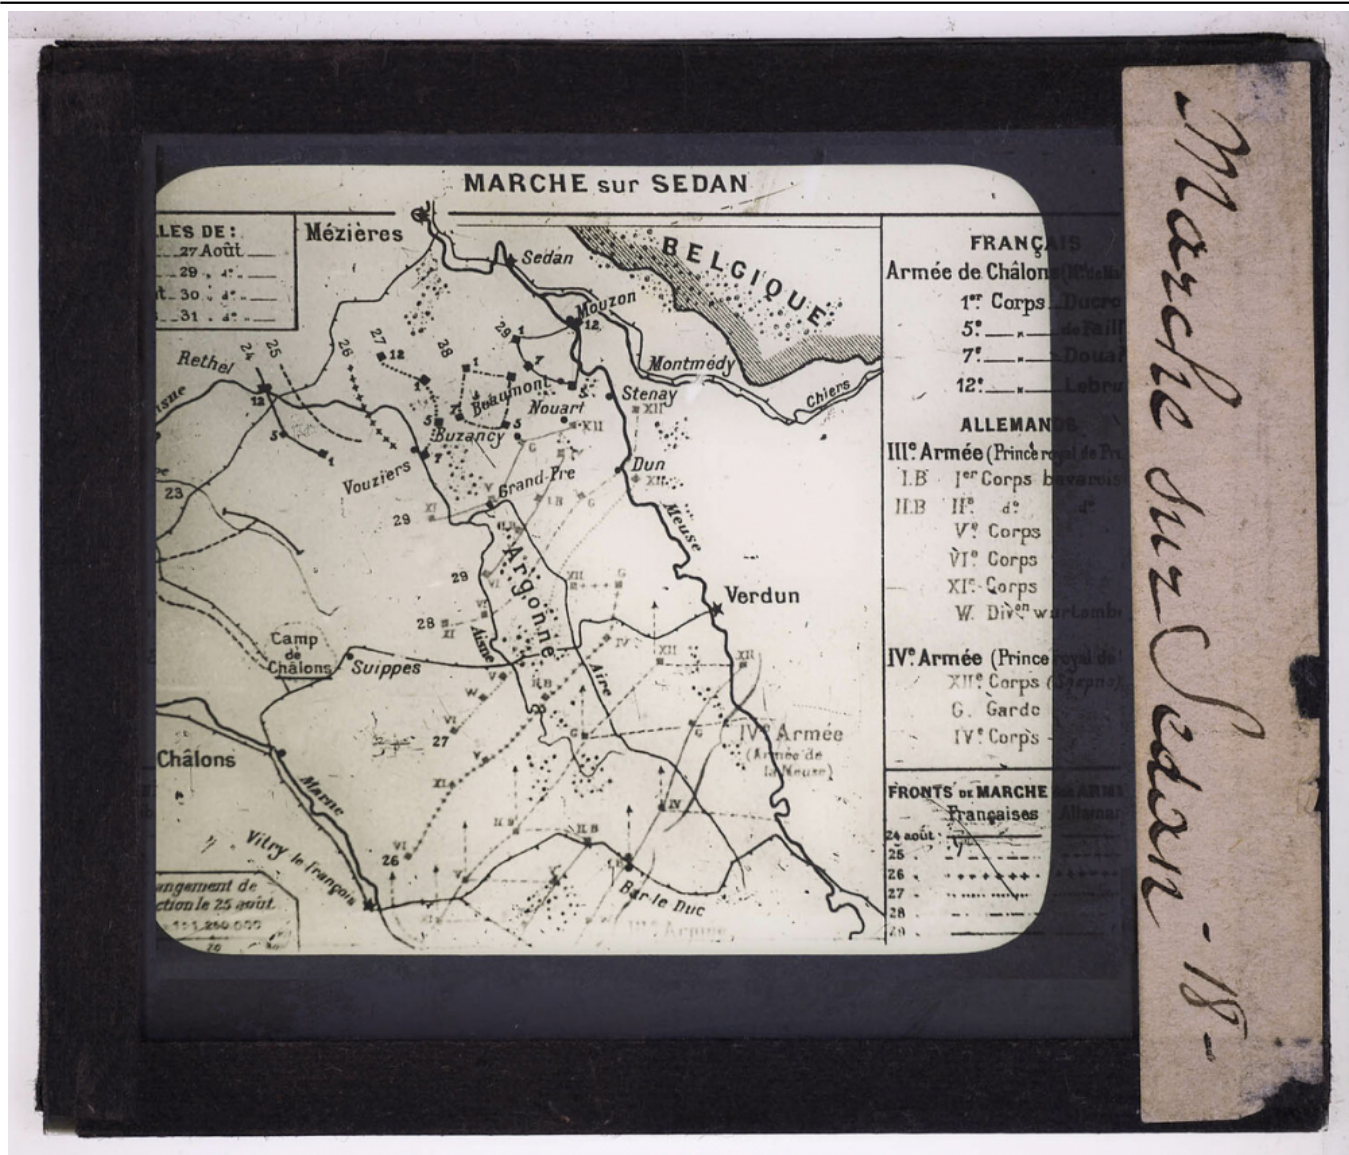 MARCHE sur SEDAN
LLES DE:
27 Août
29 " d°
30 " d°
31 " d°
Mézières
Sedan
BELGIQUE
Mouzon
12
29
1
7
5
Montmédy
Chiers
Stenay
XII
Rethel
24
25
26
27
12
38
1
Beaumont
Nouart
XII
Buzancy
Vouziers
7
Grand-Pré
Dun
XII
G
I.B
G
12
5
1
23
XI
29
Meuse
Argonne
29
VI
28
XI
XII
G
Verdun
Camp
de
Châlons
Suippes
Aisne
Aire
IV
XII
XII
V
W
II.B
VI
27
V
XI
G
G
IVe Armée
(Armée de
la Meuse)
Châlons
Marne
Vitry le François
VI
26
II.B
II.B
IV
V
Bar le Duc
IIIe Armée
angement de
ction le 25 août
1:1,250.000
FRANÇAIS
Armée de Châlons
1er Corps Ducro
5e " de Faill
7e " Douai
12e " Lebru
ALLEMANDS
IIIe Armée (Prince royal de Pru
I.B Ier Corps bavarois
II.B IIe d° d°
Ve Corps
VIe Corps
XIe Corps
W. Divon wurtemb
IVe Armée (Prince royal de
XIIe Corps (Saxons)
G. Garde
IVe Corps
FRONTS DE MARCHE des ARM
Françaises Alleman
24 août
25 "
26 "
27 "
28 "
29 "
Marche sur Sedan - 18 -